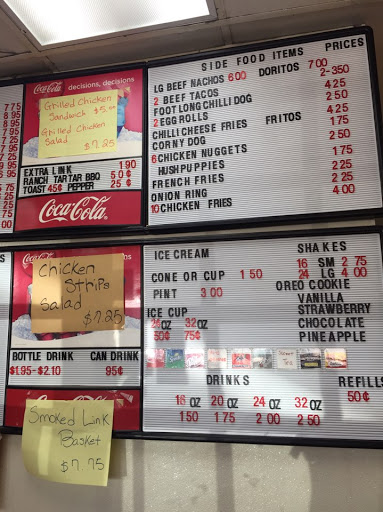 Coca-Cola decisions, decisions
Grilled Chicken
Sandwich $5.00
Grilled Chicken
Salad $7.25
EXTRA LINK 1.90
RANCH TARTAR BBQ 50 ¢
TOAST 45¢ PEPPER 25 ¢
Coca-Cola
7 75
8 95
7 95
8 95
SIDE FOOD ITEMS PRICES
LG BEEF NACHOS 6.00 DORITOS 7 00
2 BEEF TACOS 2-3 50
FOOT LONG CHILLI DOG 4 25
2 EGG ROLLS 2 50
CHILLI CHEESE FRIES FRITOS 4 25
CORN DOG 1 75
6 CHICKEN NUGGETS 2 50
HUSH PUPPIES 1 75
FRENCH FRIES 2 25
ONION RING 2 50
10 CHICKEN FRIES 4 00
Chicken
Strips
Salad
$7.25
BOTTLE DRINK CAN DRINK
$1.95-$2.10 95¢
Smoked Link
Basket
$7.75
ICE CREAM
CONE OR CUP 1 50
PINT 3 00
ICE CUP
26 OZ 32 OZ
50¢ 75¢
SHAKES
16 SM 2 75
24 LG 4 00
OREO COOKIE
VANILLA
STRAWBERRY
CHOCOLATE
PINEAPPLE
DRINKS REFILLS
16 OZ 20 OZ 24 OZ 32 OZ 50¢
1 50 1 75 2 00 2 50